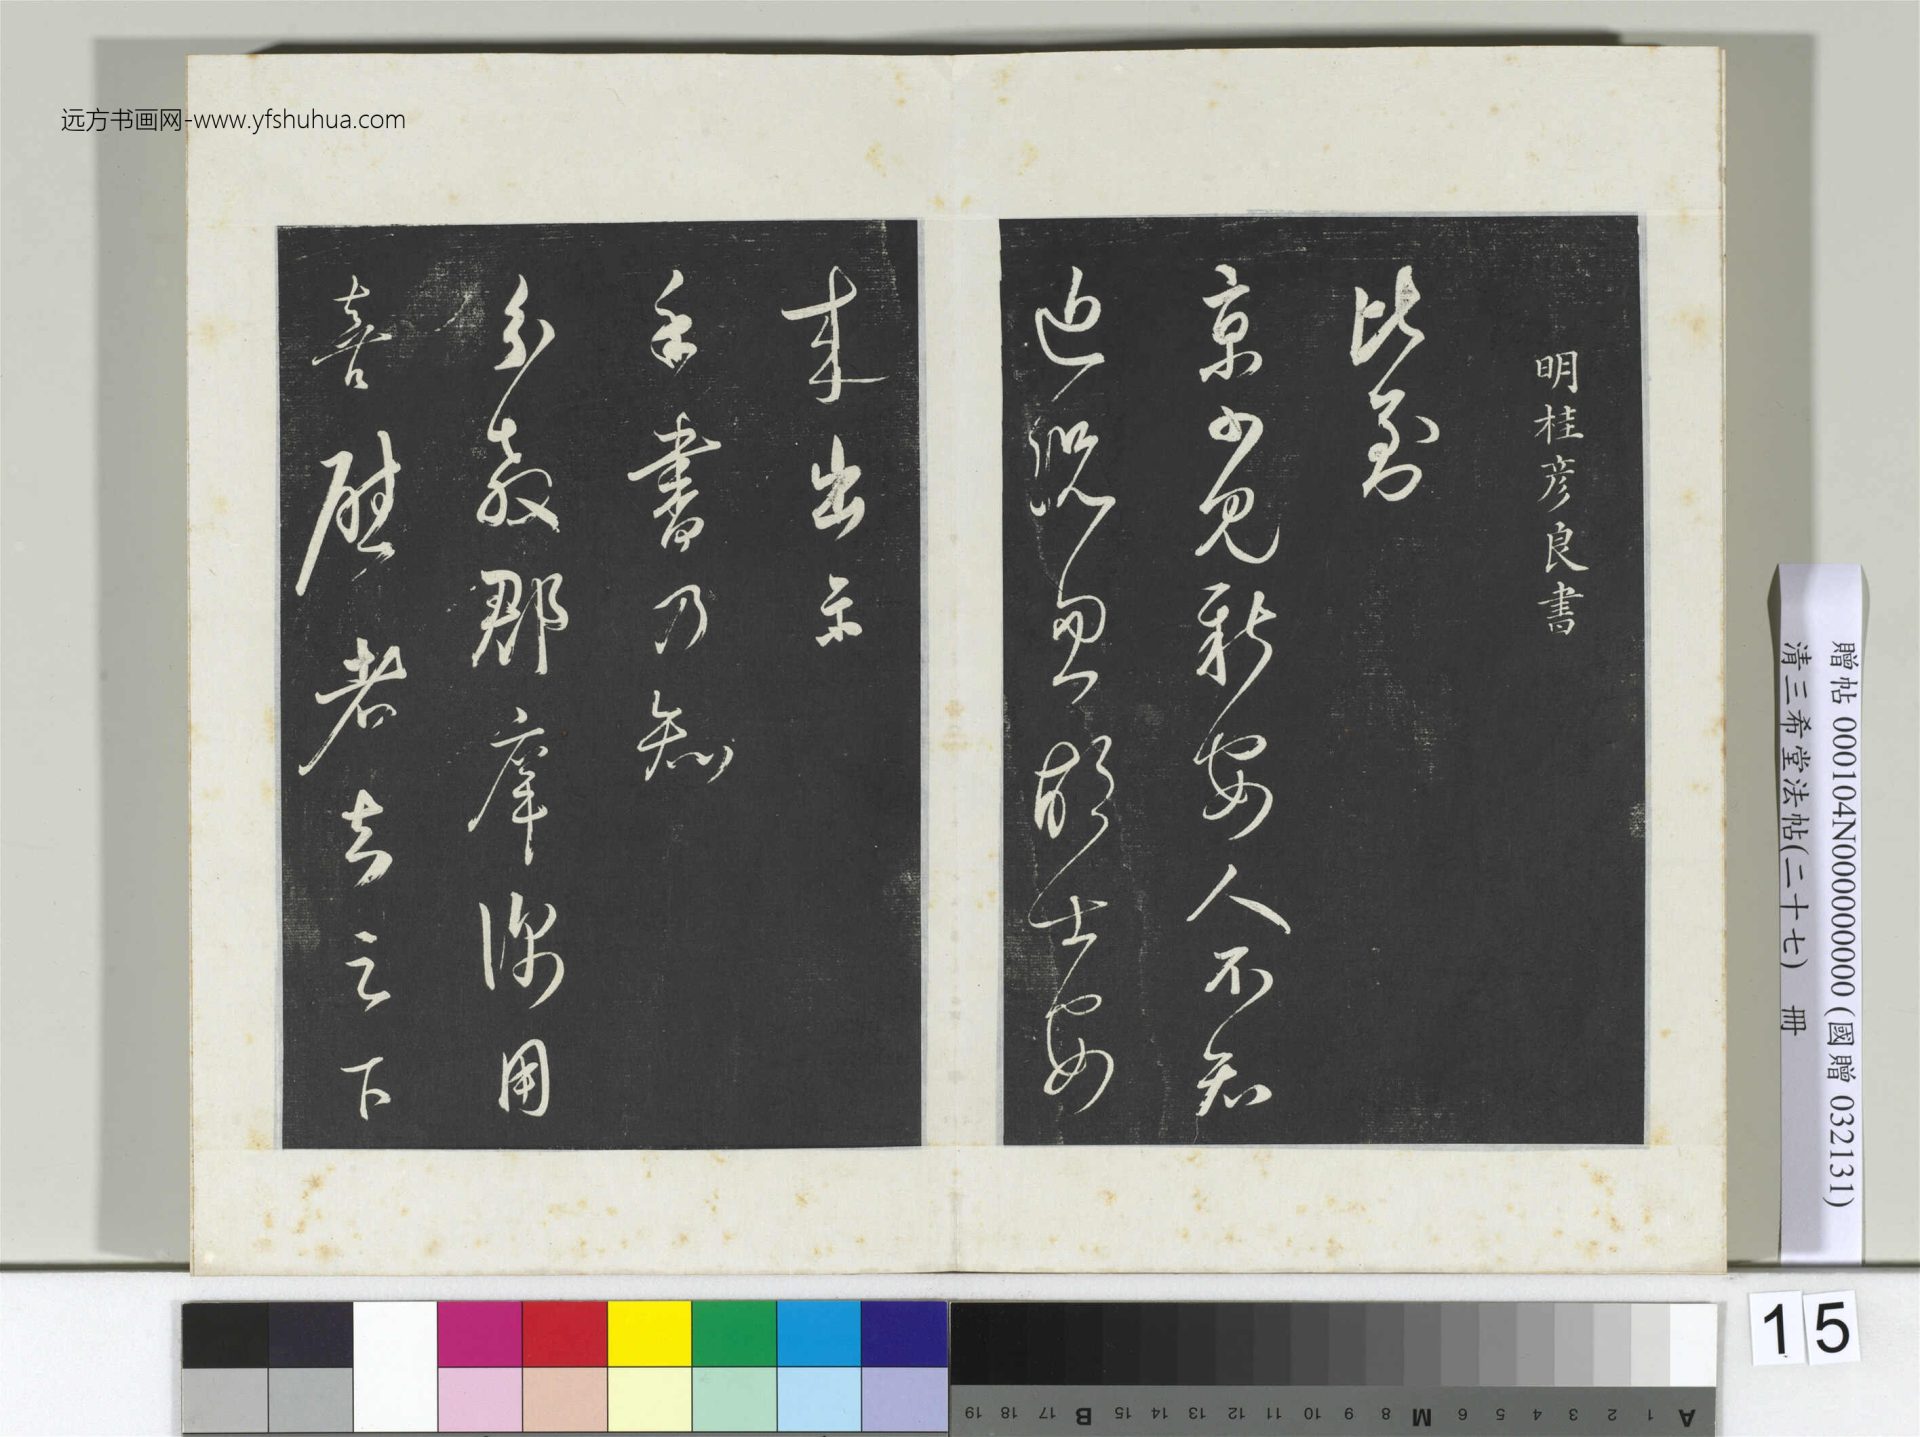 远方书画网-www.yfshuhua.com
明桂彦良書
比到
京少見新安人不知
近況忽胡士安
来出示
手書乃知
分教郡庠深用
喜慰者去之下
贈帖 000104N000000000 (國贈 032131)
清三希堂法帖(二十七) 冊
15
A 1 2 3 4 5 6 M 8 9 10 11 12 13 14 15 B 17 18 19